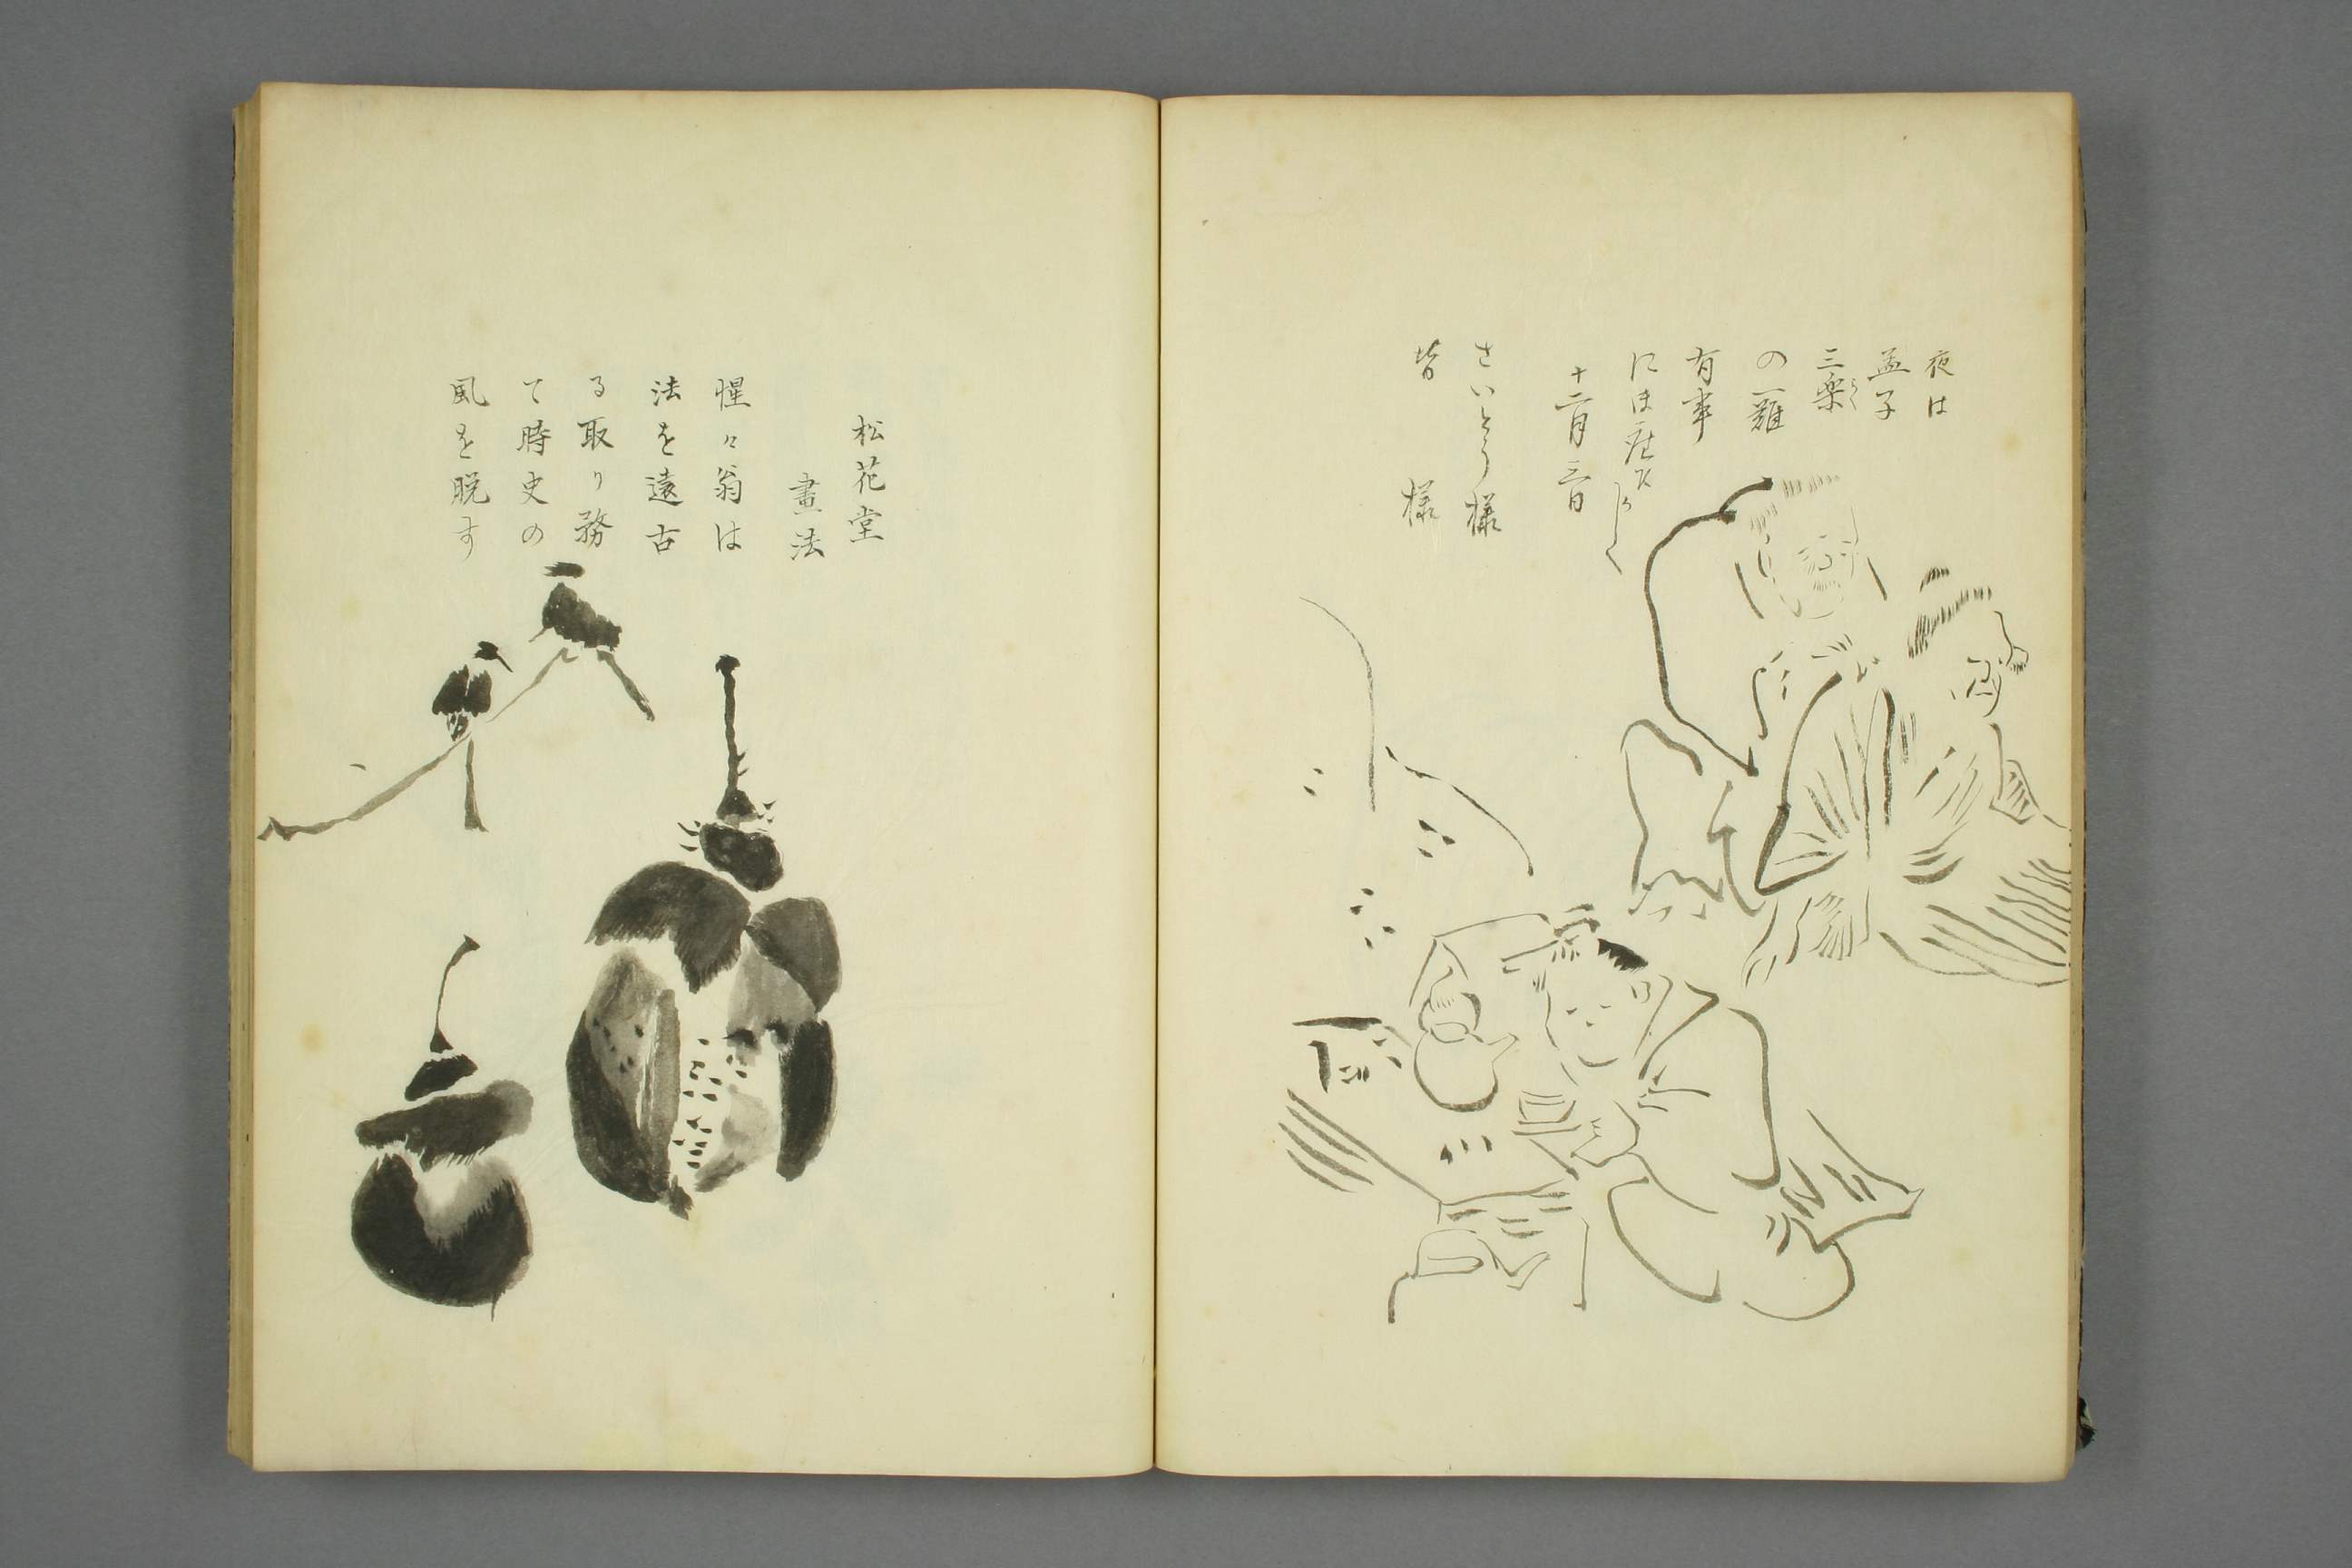 夜は
孟子
三楽
の一難
有事
には
十二月三日
さいとう様
皆様
松花堂
畫法
惺々翁は
法を遠古
る取り務
て時史の
風を脱す